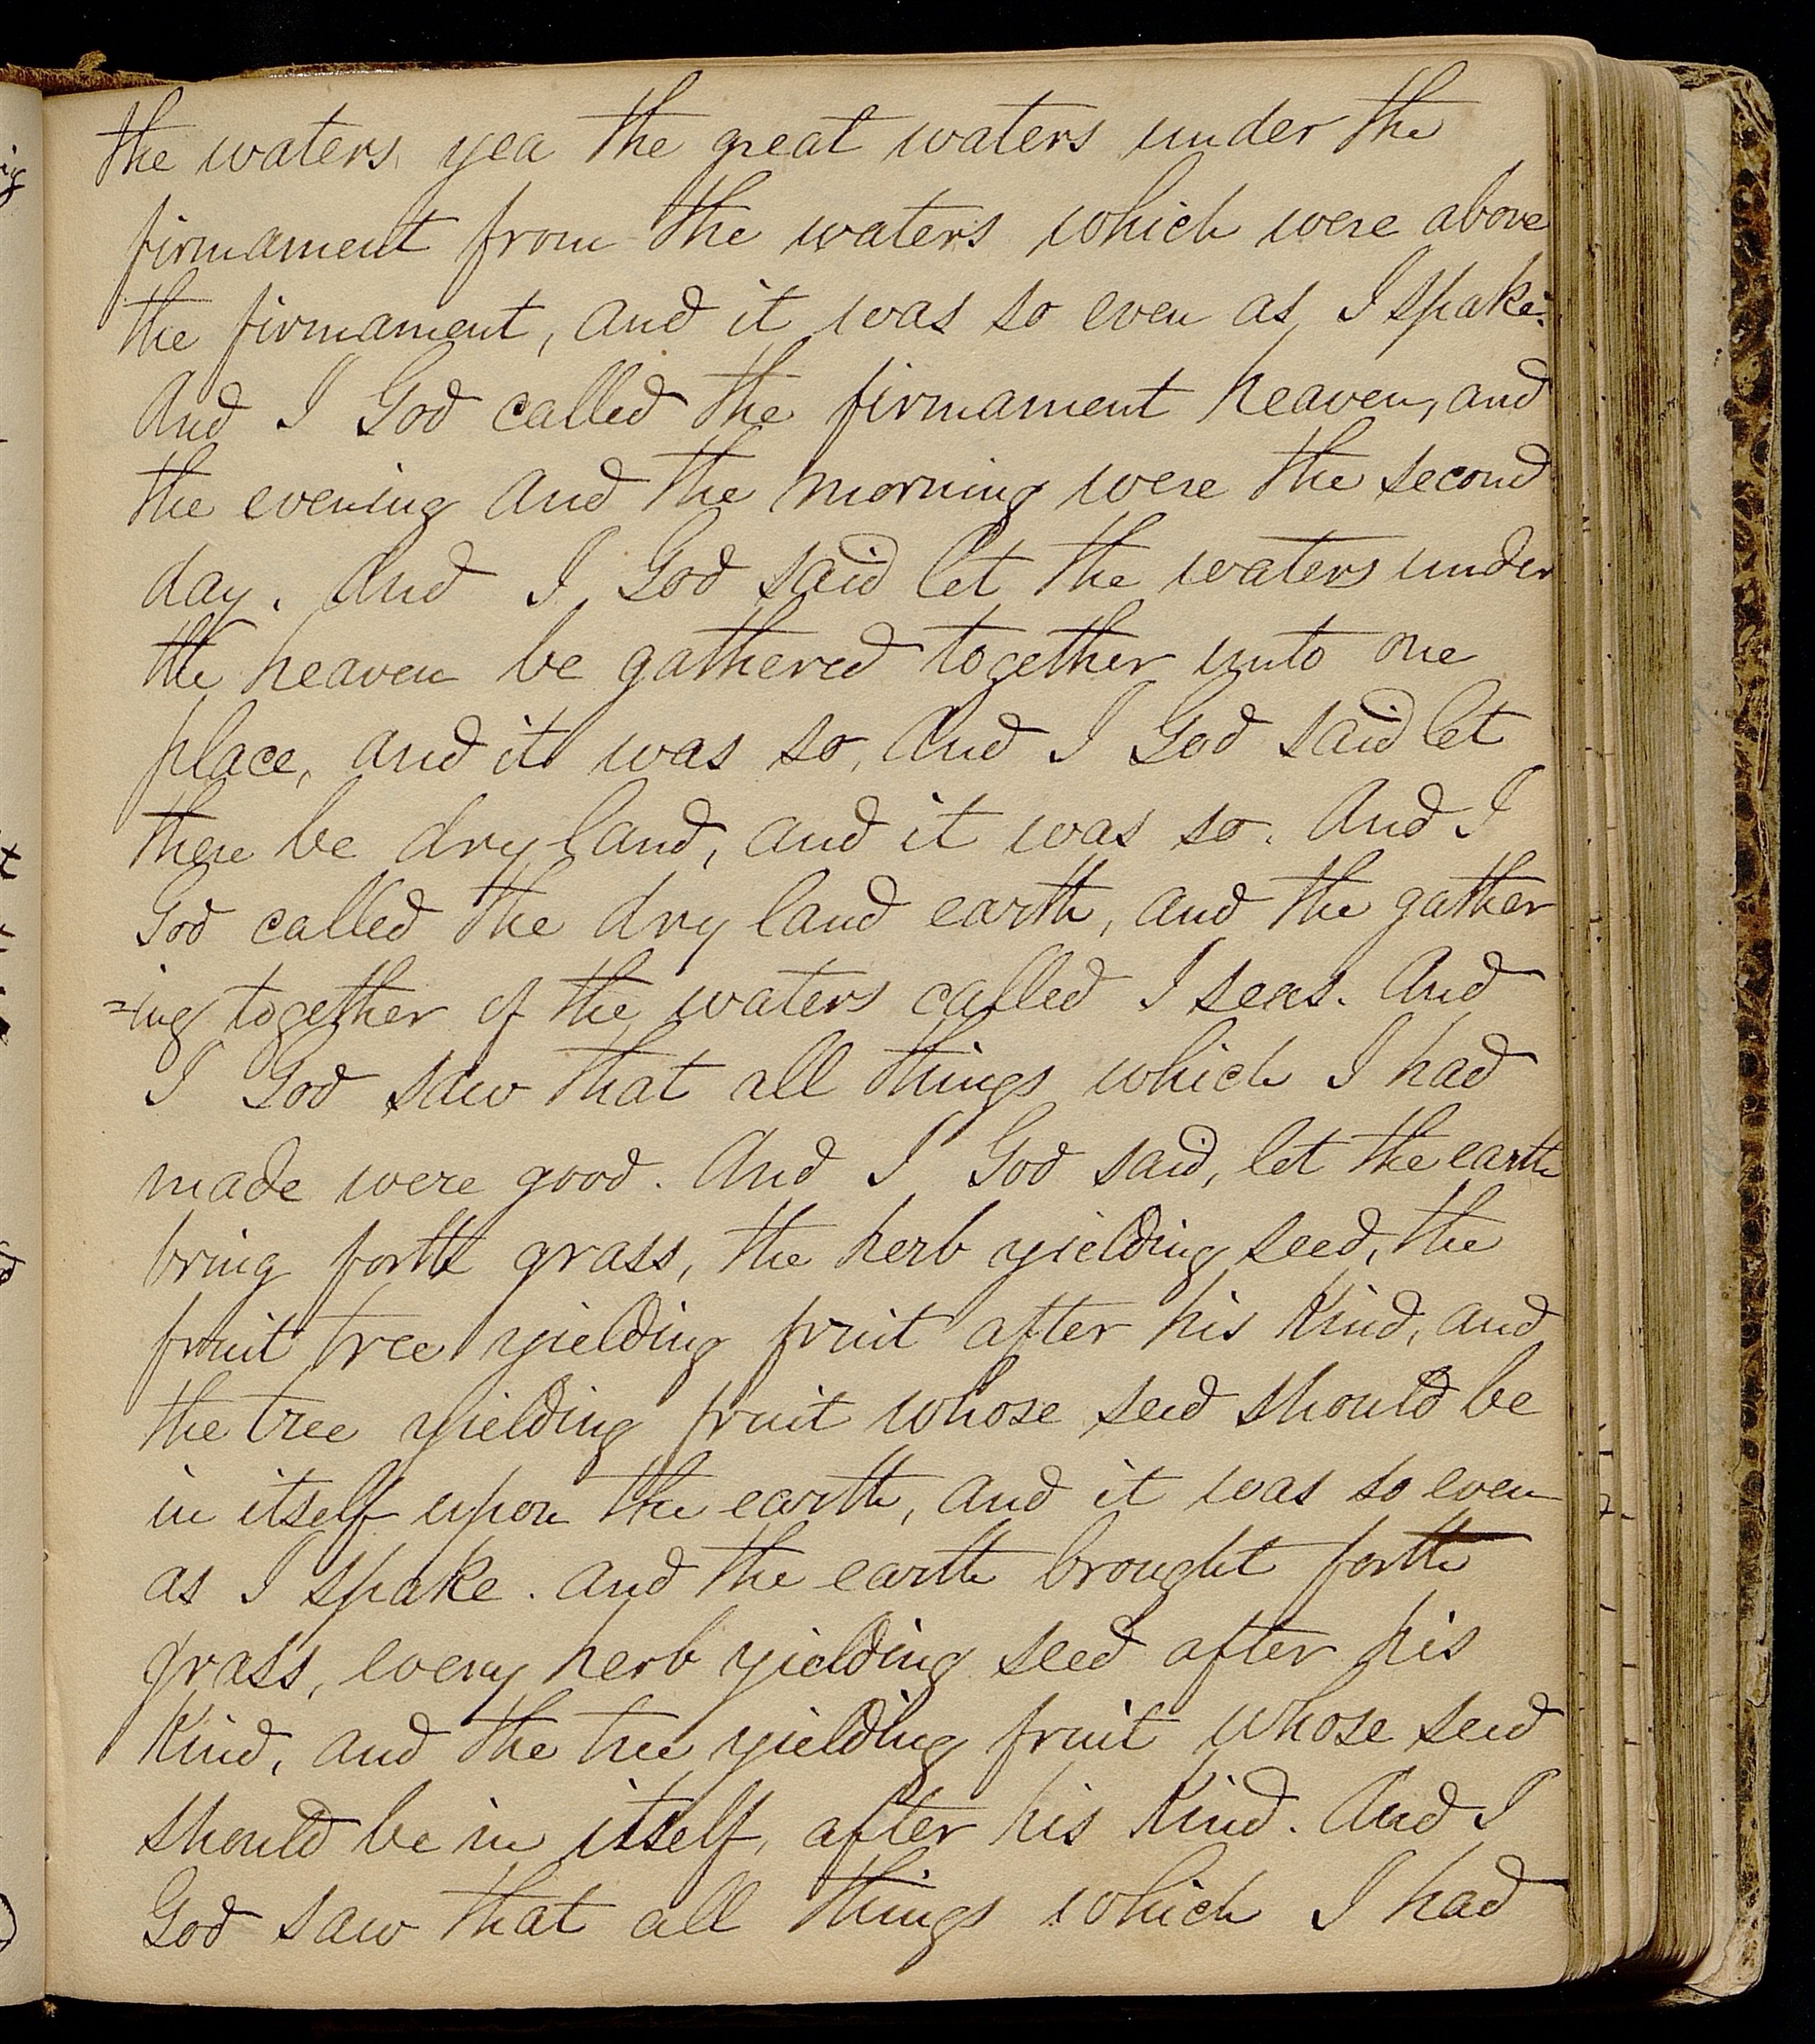 the waters, yea the great waters under the
firmament from the waters which were above
the firmament, and it was so even as I spake.
And I God called the firmament heaven, and
the evening and the morning were the second
day. And I God said let the waters under
the heaven be gathered together unto one
place, and it was so, And I God said let
there be dry land, and it was so. And I
God called the dry land earth, and the gather
=ing together of the waters called I seas. And
I God saw that all things which I had
made were good. And I God said, let the earth
bring forth grass, the herb yielding seed, the
fruit tree yielding fruit after his kind, and
the tree yielding fruit whose seed should be
in itself upon the earth, and it was so even
as I spake. and the earth brought forth
grass, every herb yielding seed after his
kind, and the tree yielding fruit whose seed
should be in itself, after his kind. And I
God saw that all things which I had